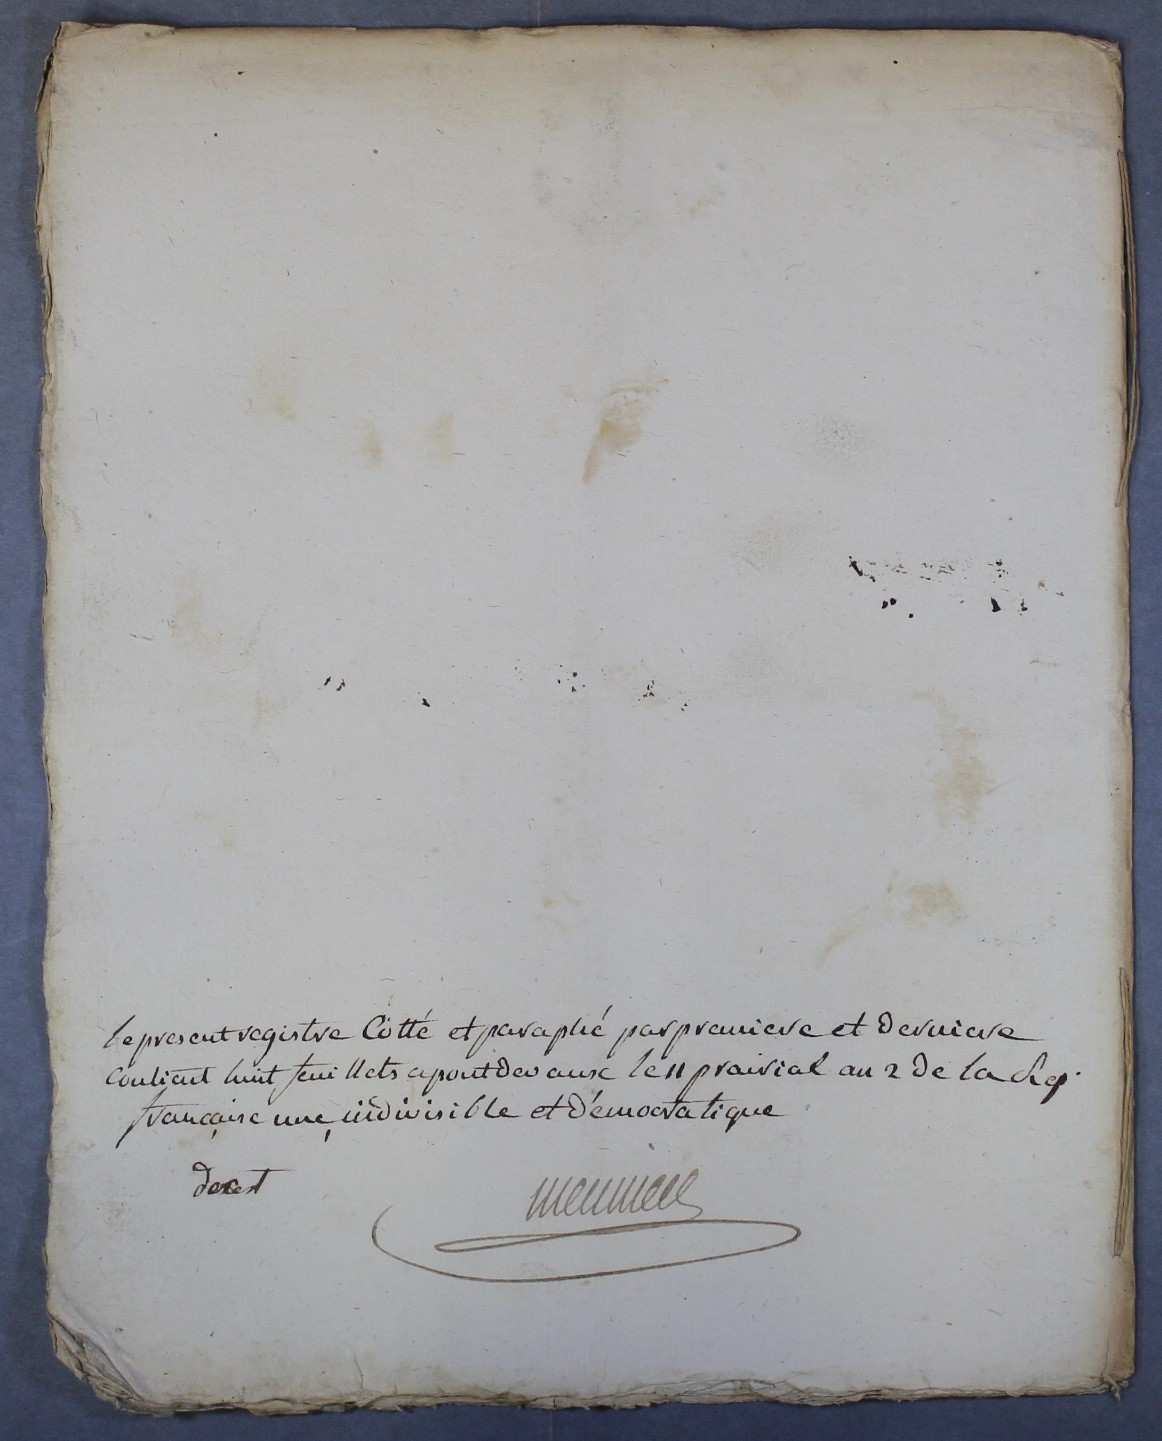 le present registre Cotté et paraphé par premiere et derniere
contient huit feuillets a pont de vause le 11 prairial an 2 de la Rep.
francaise une, indivisible et démocratique
meuniere